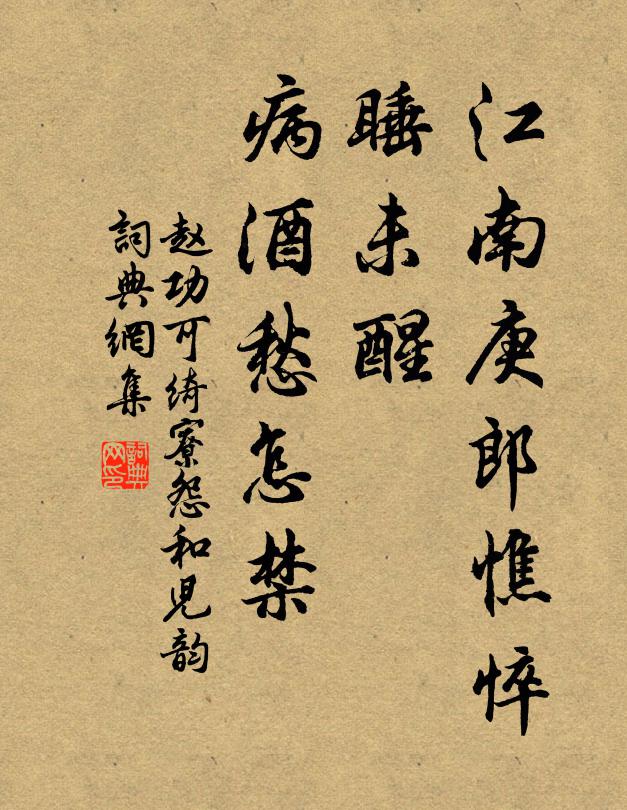 江南庚郎憔悴
睡未醒
病酒愁怎禁
赵功可绮寮怨和児韵
詞典網集
詞典网印